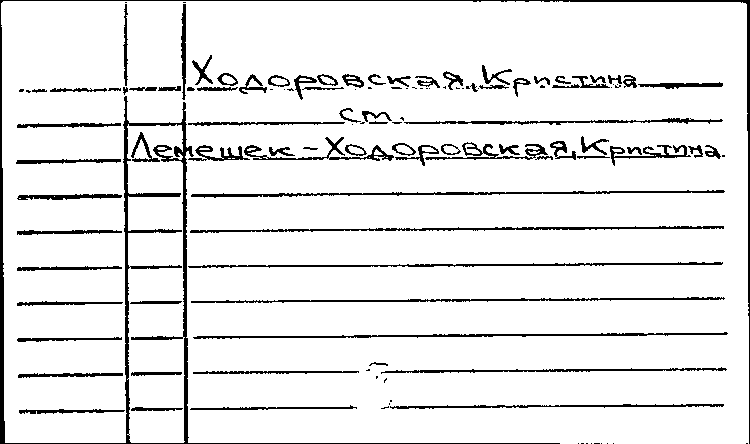 Ходоровская, Кристина
см.
Лемешек-Ходоровская, Кристина